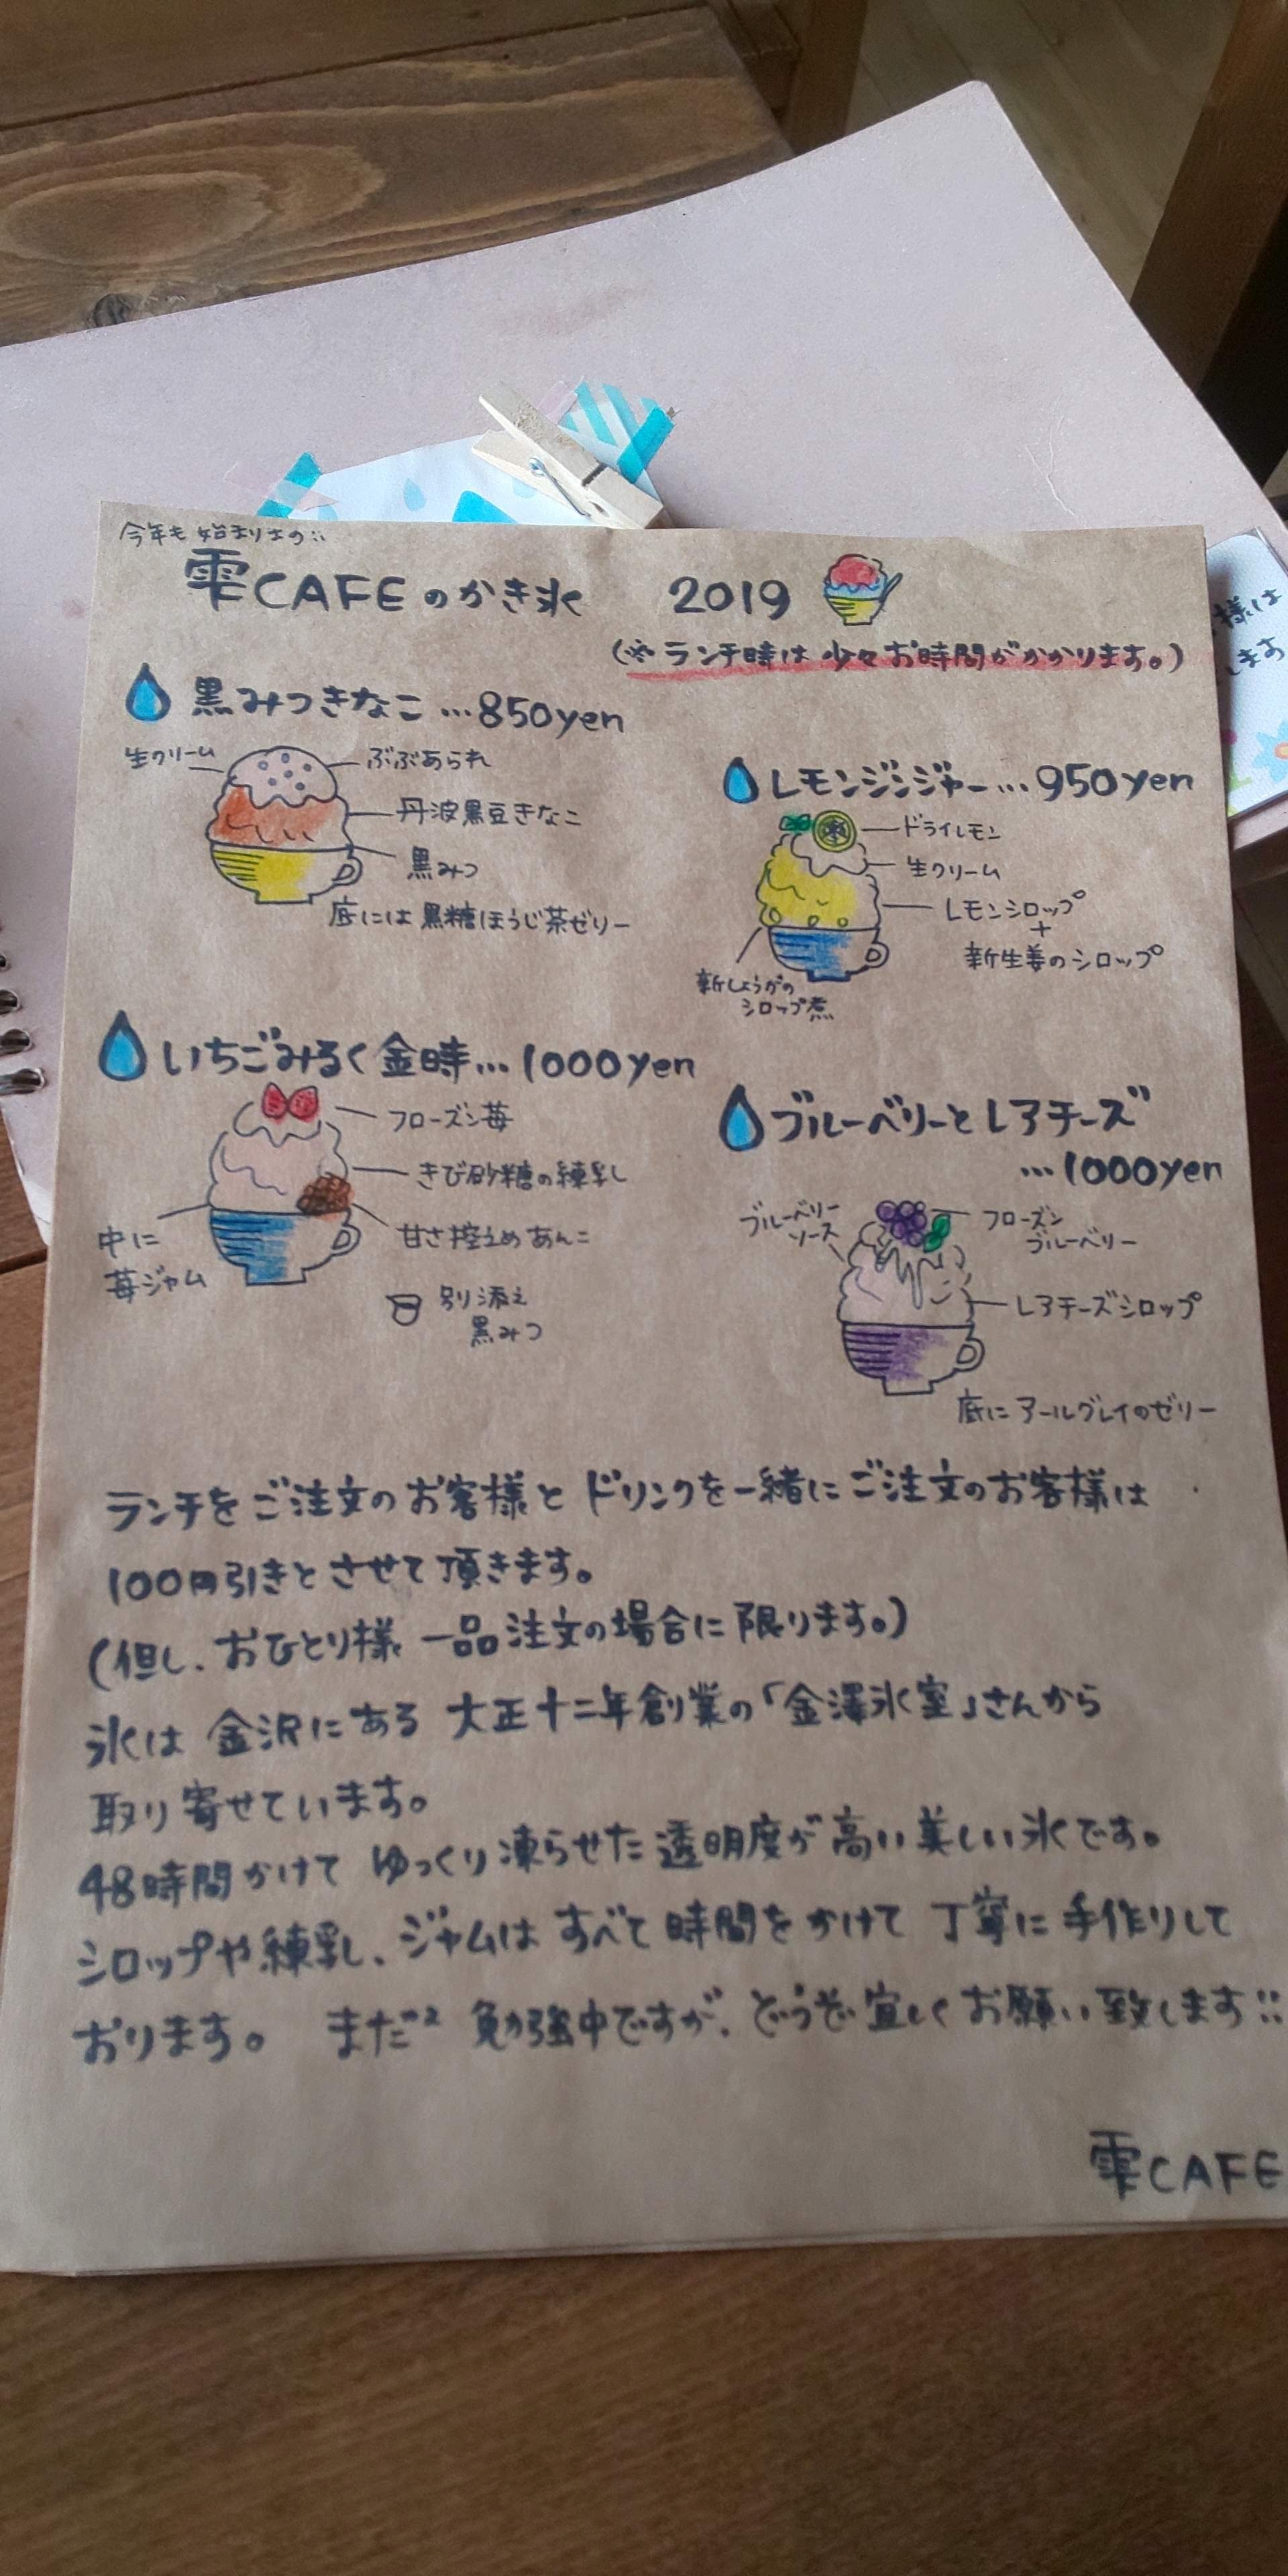 今年も始まりました
雫CAFEのかき氷 2019
(※ランチ時は少々お時間がかかります。)
黒みつきなこ…850yen
生クリーム
ぶぶあられ
丹波黒豆きなこ
黒みつ
底には黒糖ほうじ茶ゼリー
レモンジンジャー…950yen
ドライレモン
生クリーム
レモンシロップ
+
新生姜のシロップ
新しょうがの
シロップ煮
いちごみるく金時…1000yen
フローズン苺
きび砂糖の練乳
甘さ控えめあんこ
中に
苺ジャム
別添え
黒みつ
ブルーベリーとレアチーズ
…1000yen
ブルーベリー
ソース
フローズン
ブルーベリー
レアチーズシロップ
底にアールグレイのゼリー
ランチをご注文のお客様とドリンクを一緒にご注文のお客様は
100円引きとさせて頂きます。
(但し、おひとり様一品注文の場合に限ります。)
氷は金沢にある大正十二年創業の「金澤氷室」さんから
取り寄せています。
48時間かけてゆっくり凍らせた透明度が高い美しい氷です。
シロップや練乳、ジャムはすべて時間をかけて丁寧に手作りして
おります。まだ〃2勉強中ですが、どうぞ宜しくお願い致します
雫CAFE
様は
します